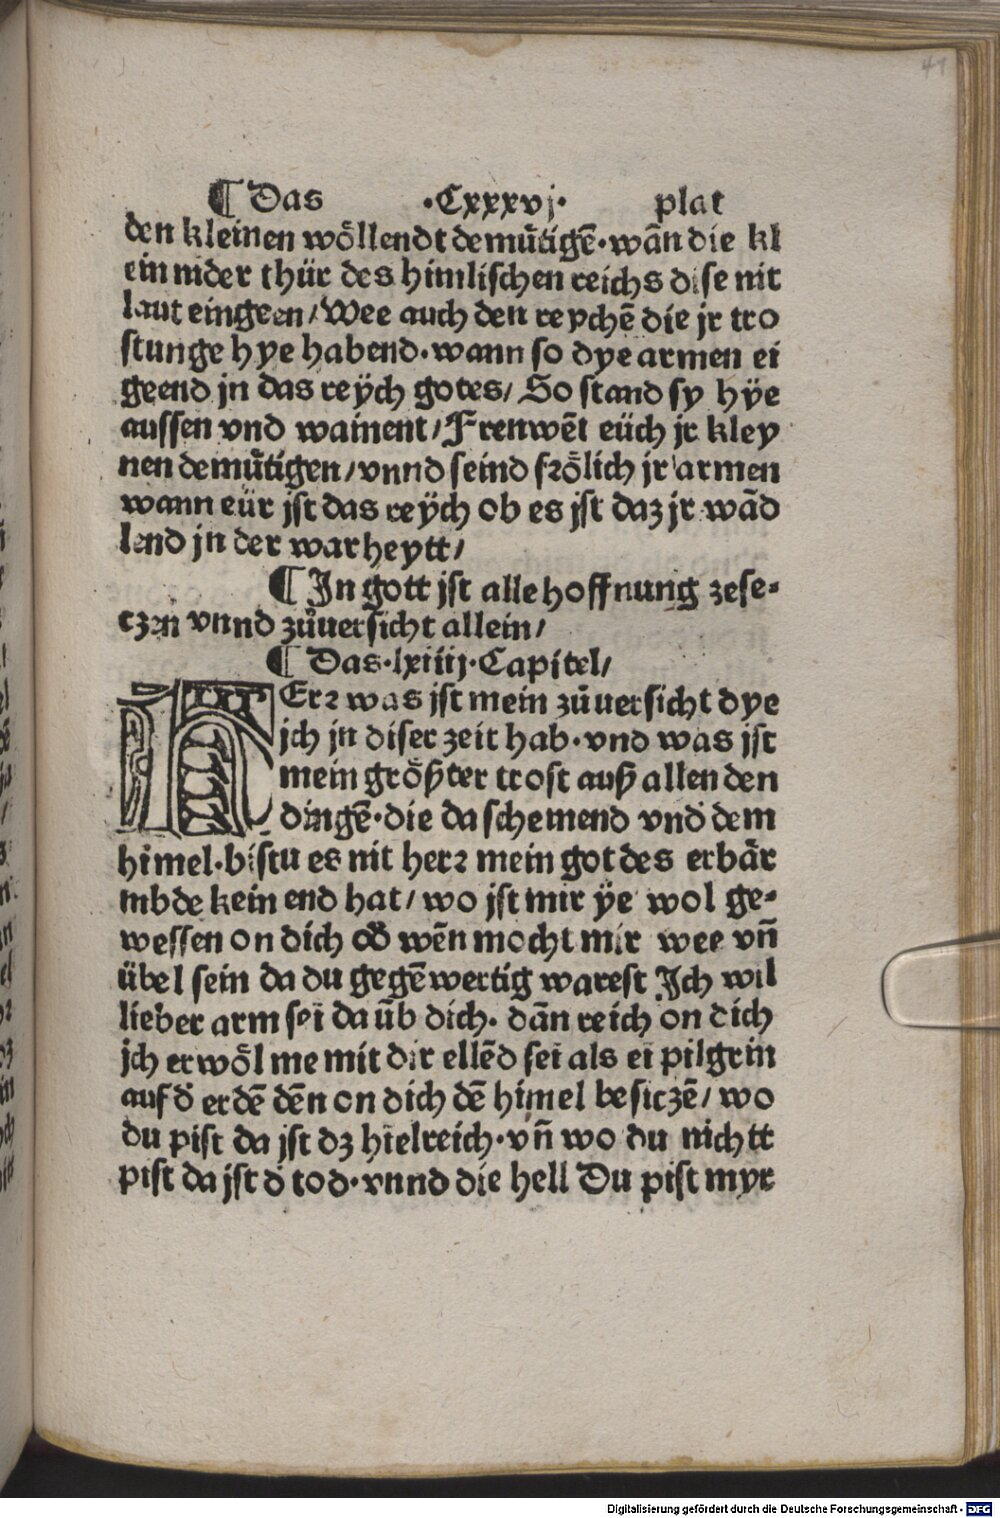 41
¶ Das ·Cxxxvj· plat
den kleinen wöllendt deműtigē·wān die kl
ein nider thür des himlischen reichs dise nit
laut eingeen/Wee auch den reychē die jr tro
stunge hye habend·wann so dye armen ei
geend jn das reÿch gotes/ So stand sy hÿe
aussen vnd wainent/Frenwēt eüch jr kley
nen deműtigen/vnnd seind frölich jr armen
wann eür jst das reÿch ob es jst daz jr wād
lend jn der warheytt/
¶ In gott jst alle hoffnung zese-
tzen vnnd zůuersicht allein/
¶ Das·lxiiij·Capitel/
HErꝛ was jst mein zůuersicht dye
jch jn diser zeit hab·vnd was jst
mein größter trost auß allen den
dingē·die da scheinend vnd dem
himel·bistu es nit herꝛ mein got des erbär
mbde kein end hat/wo jst mir ÿe wol ge-
wessen on dich od̓ wēn mocht mir wee vn̄
übel sein da du gegēwertig warest Ich wil
lieber arm seī da ūb dich· dān reich on dich
jch erwöl me mit dir ellēd sei als ei pilgrin
auf d̓ erdē dēn on dich dē himel besiczē/wo
du pist da jst dz hīelreich·vn̄ wo du nichtt
pist da jst d̓ tod·vnnd die hell Du pist myr
Digitalisierung gefördert durch die Deutsche Forschungsgemeinschaft - DFG